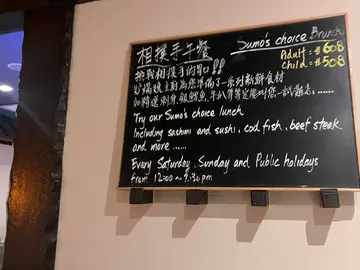 相撲手午餐
Sumo's choice Brunch
Adult = $608
Child = $508
挑戰相撲手的胃口!!
廚師為您準備了一系列新鮮食材
如刺身、銀鱈魚、牛扒等等定能叫您一試難忘......
Try our Sumo's choice lunch
Including sashimi and sushi, cod fish, beef steak
and more ......
Every Saturday, Sunday and Public holidays
from 12:00 ~ 9:30 pm